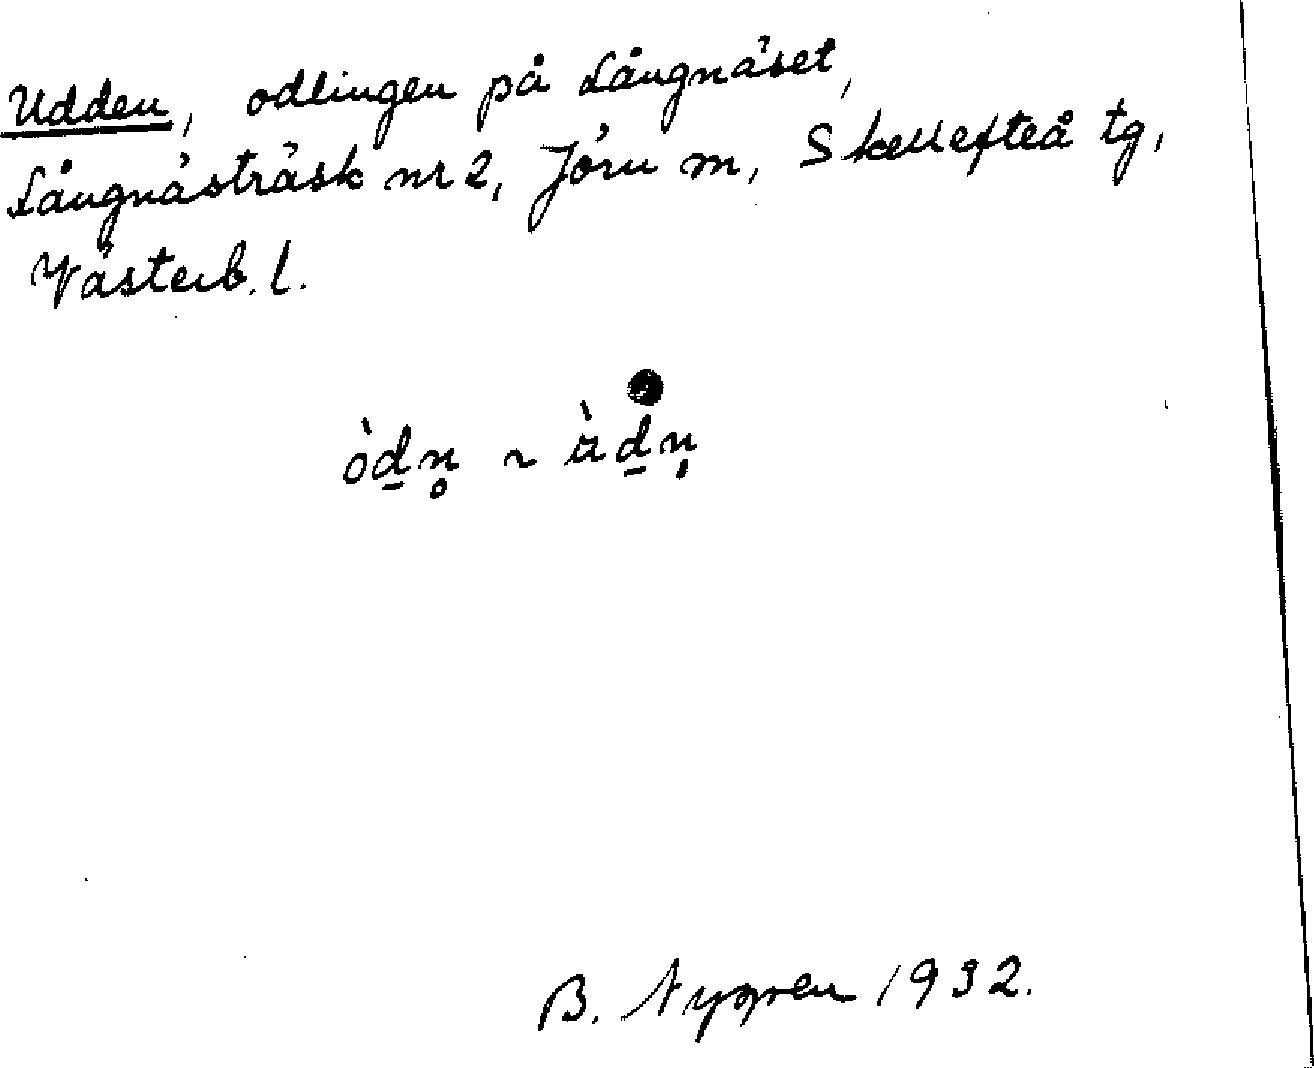 Udden, odlingen på Långnäset,
Långnästräsk nr 2, Jörn m, Skellefteå tg,
Västerb. l.
òḏn̥ ~ ὰḏṇ
B. Nygren 1932.